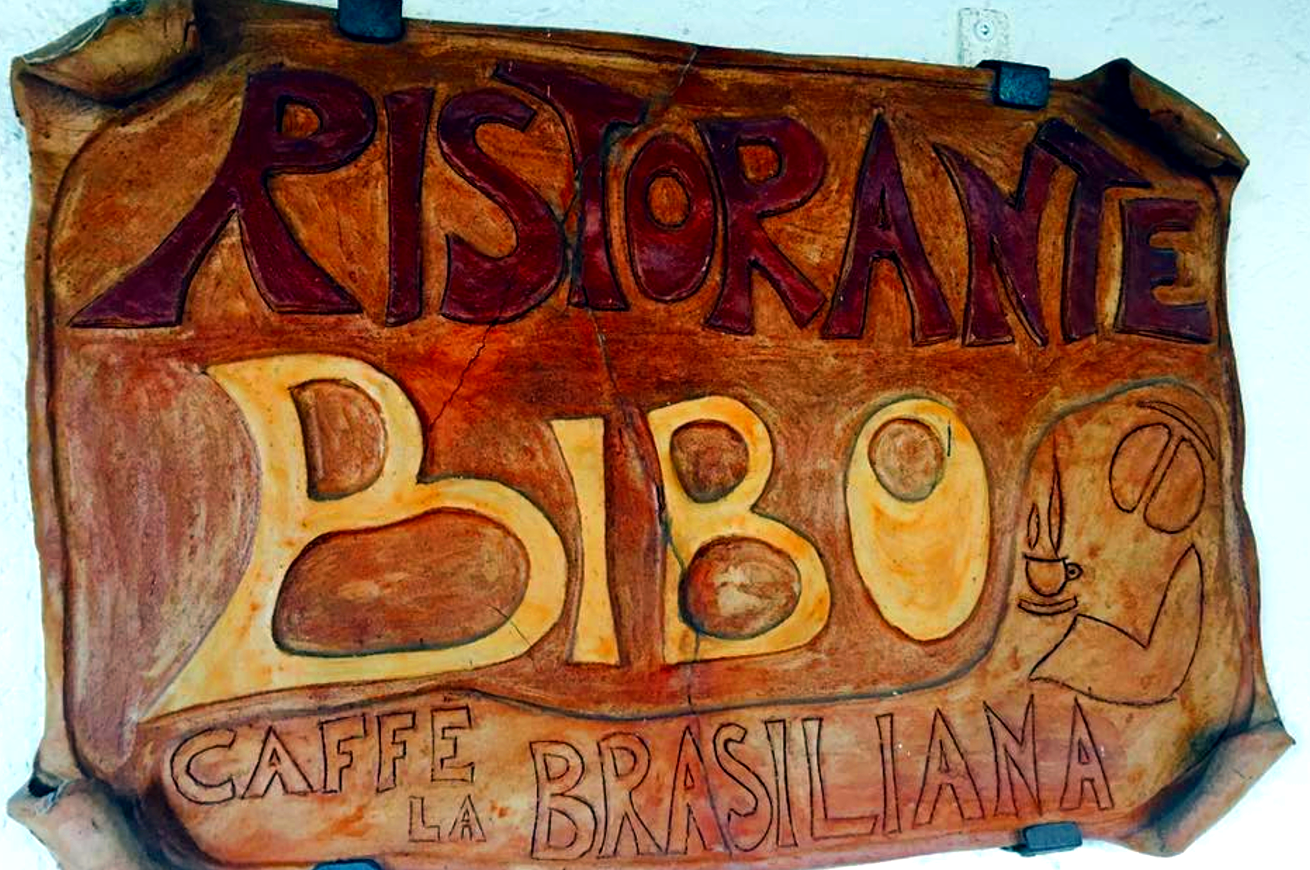 RISTORANTE
BIBO
CAFFÈ
LA BRASILIANA